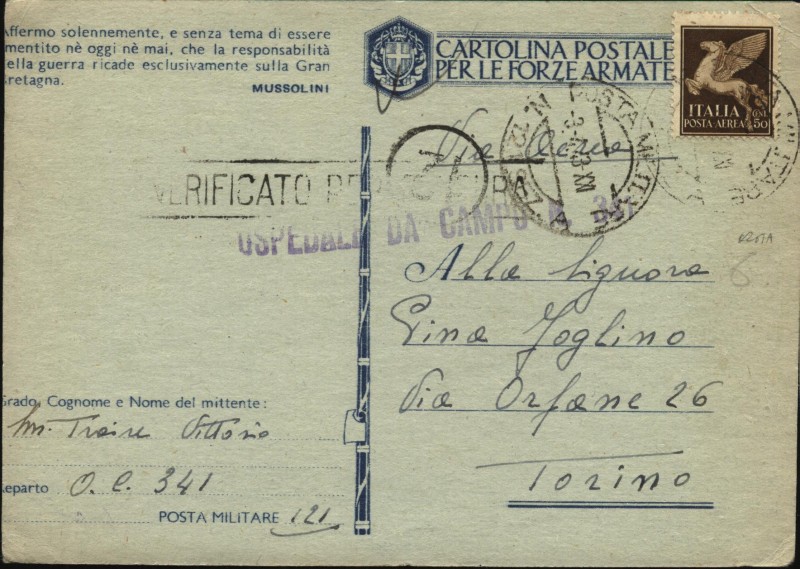 Affermo solennemente, e senza tema di essere
smentito nè oggi nè mai, che la responsabilità
della guerra ricade esclusivamente sulla Gran
Bretagna.
MUSSOLINI
CARTOLINA POSTALE
PER LE FORZE ARMATE
ITALIA
POSTA AEREA 50
Via Aerea
POSTA MILITARE
VERIFICATO PER
OSPEDALE DA CAMPO N. 341
Alla Signora
Gina Foglino
Via Orfane 26
Torino
Grado, Cognome e Nome del mittente:
Vittorio
Reparto O. C. 341
POSTA MILITARE 121